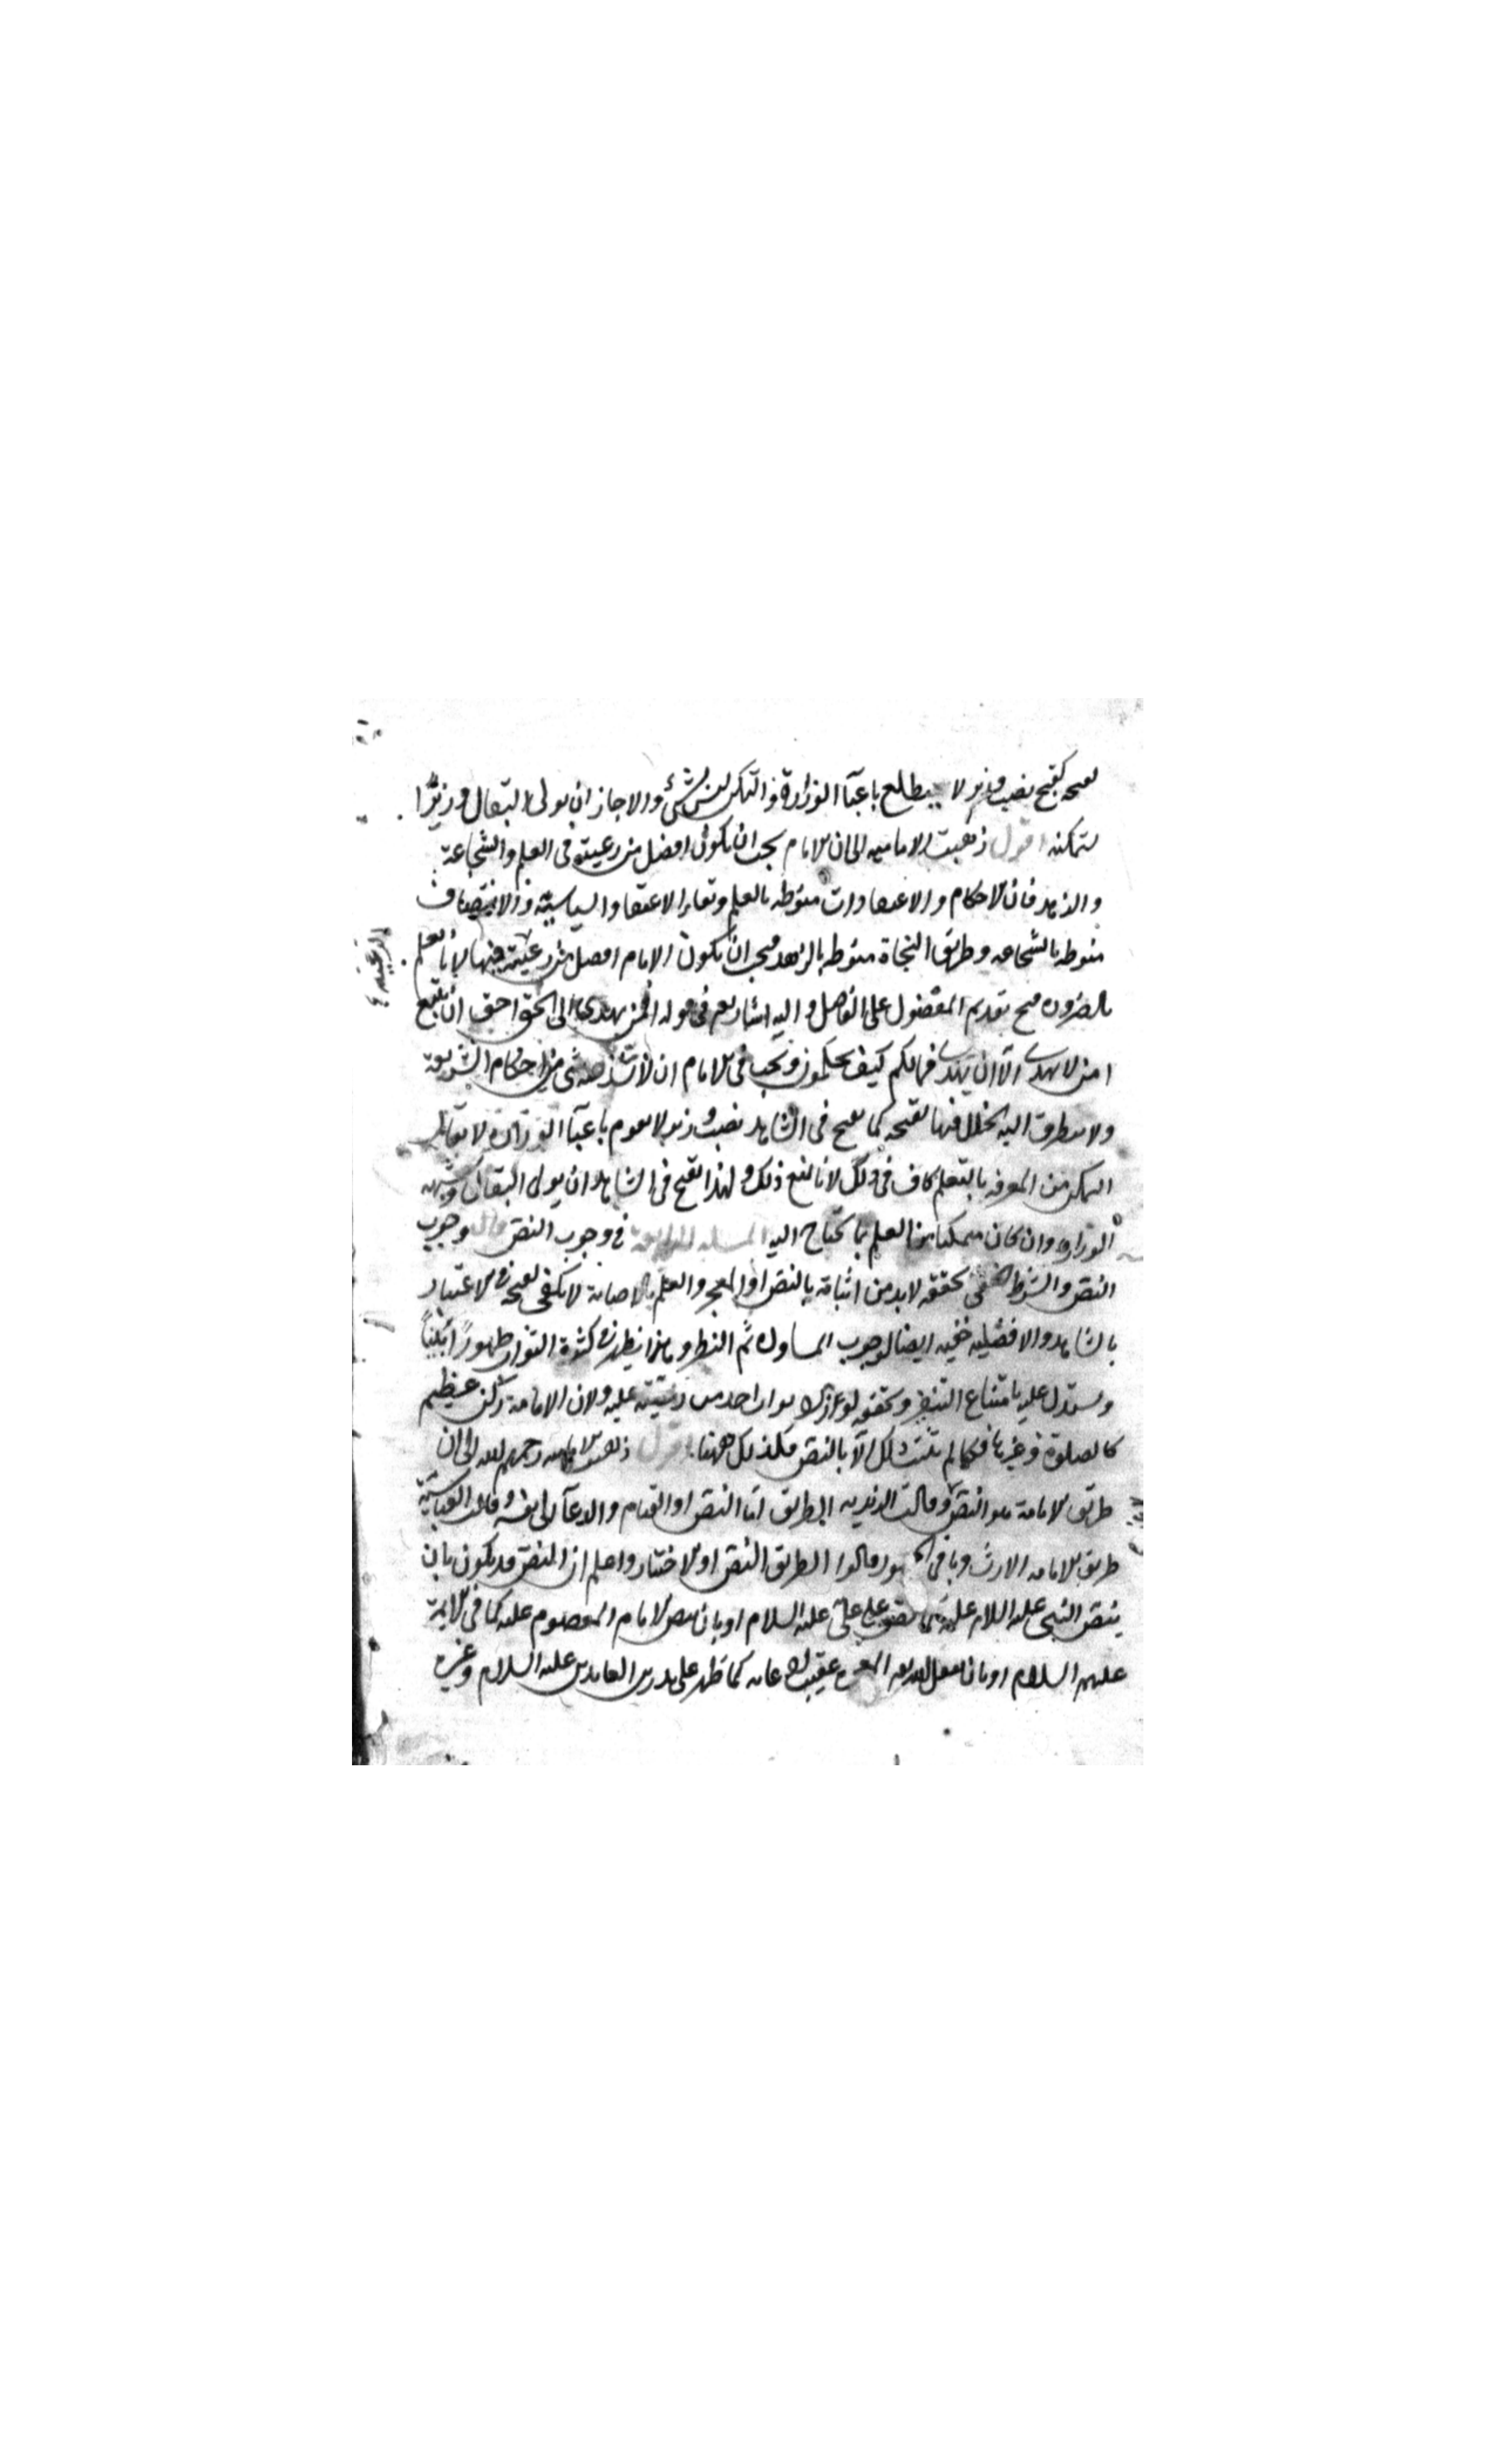 يقبح كقبح نصب وزير لا يطلع باعبآ الوزارة والتمكن ليس بشئ والا جاز ان يولى البقال وزيرًا
لتمكنه اقول ذهبت الامامية الى ان الامام يجب ان يكون افضل من رعيته فى العلم والشجاعة
والزهد فان الاحكام والاعتقادات منوطه بالعلم و والسياسية والانتصاف
منوطه بالشجاعه وطريق النجاة منوطه بالزهد فيجب ان يكون الامام افضل من رعيته فيها لانا نعلم
بالضروره قبح تقديم المفضول على الفاضل واليه اشار تع فى قوله افمن يهدى الى الحق احق ان يتبع
امن لا يهدى الآ ان يهدى فمالكم كيف تحكمون ويجب فى الامام ان لا يشذ عنه شى من احكام الشريعة
ولا يتطرق اليه الخلل فيها لقبحه كما يقبح فى الشاهد نصب وزير لا يقوم باعبآ الوزارة لا يقال
التمكن من المعرفه بالتعلم كاف فى ذلك لانا نمنع ذلك ولهذا يقبح فى الشاهد ان يولى البقال وشبهه
الوزارة وان كان متمكنا من العلم بما يحتاج اليه المسله الرابعة فى وجوب النص قال وجوب
النص والشرط خفى تحققه لابد من اثباته بالنص او المعجز والعلم بالاصابة لا يكفى لقبحه فى الاعتبار
بالشاهد والافضليه خفيه ايضا لوجوب المساواه ثم النظر وباهرا يظهر فى كثرة الثواب ظهورًا بينًا
ويستدل عليه بامتناع التنفر وتحققه لو عليه ولان الامامة ركن عظيم
كالصلوة وغيرها فكما لم تثبت تلك الآ بالنص فكذلك ههنا اقول ذهبت الاماميه رحمهم الله الى ان
طريق الامامة هو النص وقالت الزيديه الطريق امّا النص او القيام والدعآ الى نفسه وقالت العباسيّة
طريق الامامه الارث وباقى الجمهور قالوا الطريق النص او الاختيار واعلم ان النص قد يكون بان
ينص النبى عليه السلام عليه كما نص على علىّ عليه السلام او بان ينص الامام المعصوم عليه كما فى الايمة
عليهم السلام او بان يفعل الله تع المعجزه عقيب ادعائه كما ظهر على يد زين العابدين عليه السلام وغيره